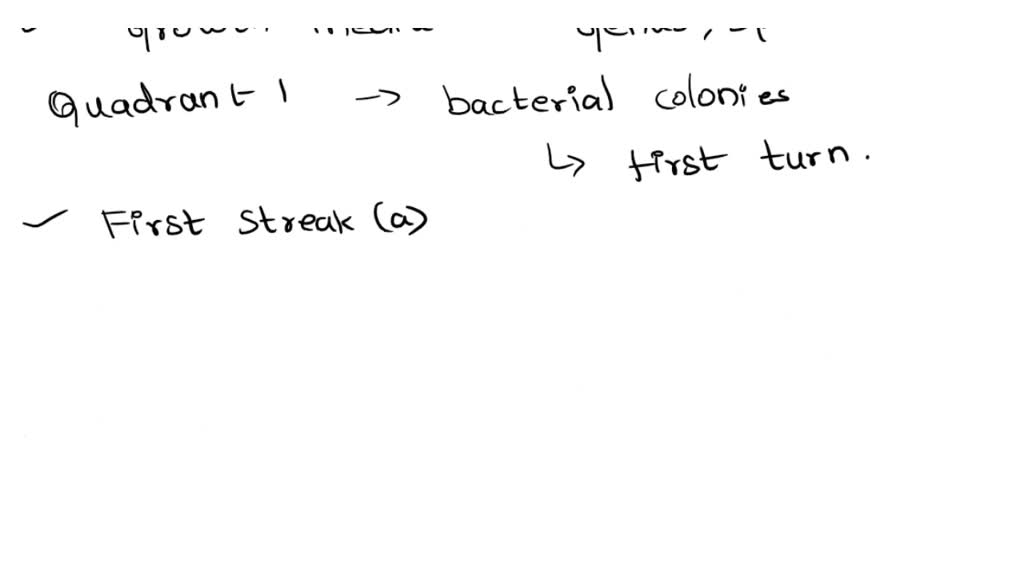 Quadrant 1 → bacterial colonies
↳ first turn.
✓ First streak (a)